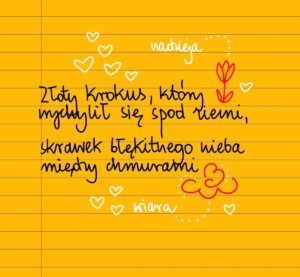 nadzieja
Złoty krokus, który
wychylił się spod ziemi,
skrawek błękitnego nieba
między chmurami
wiara